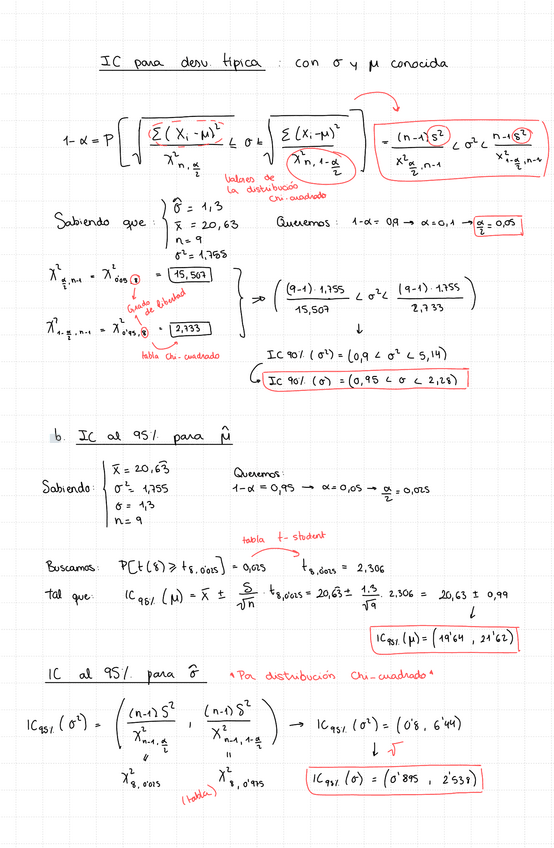 IC para desv. típica : con σ y μ conocida
1-α = P [ √( Σ(Xᵢ-μ)² / χ²ₙ,α/2 ) ≤ σ ≤ √( Σ(Xᵢ-μ)² / χ²ₙ,1-α/2 ) ] = (n-1)S² / χ²α/2,n-1 < σ² < n-1 S² / χ²1-α/2,n-1
Valores de
la distribución
chi-cuadrado
Sabiendo que :
σ̂ = 1,3
x̄ = 20,63
n = 9
σ² = 1,755
Queremos: 1-α = 0,9 → α = 0,1 → α/2 = 0,05
χ²α/2,n-1 = χ²0'05,8 = 15,507
Grado de libertad
χ²1-α/2,n-1 = χ²0'95,8 = 2,733
tabla chi-cuadrado
⇒ ( (9-1)·1,755 / 15,507 < σ² < (9-1)·1,755 / 2,733 )
↓
IC 90% (σ²) = (0,9 < σ² < 5,14)
IC 90% (σ) = (0,95 < σ < 2,28)
b. IC al 95% para μ̂
Sabiendo:
x̄ = 20,63
σ² = 1,755
σ = 1,3
n = 9
Queremos:
1-α = 0,95 → α = 0,05 → α/2 = 0,025
tabla t-student
Buscamos: P[t(8) ≥ t8,0'025] = 0,025 t8,0'025 = 2,306
tal que: IC 95% (μ) = x̄ ± S/√n · t8,0'025 = 20,63 ± 1,3/√9 · 2,306 = 20,63 ± 0,99
↓
IC 95% (μ) = (19'64 , 21'62)
IC al 95% para σ̂ *Por distribución Chi-cuadrado*
IC 95% (σ²) = ( (n-1)S² / χ²n-1,α/2 , (n-1)S² / χ²n-1,1-α/2 ) → IC 95% (σ²) = (0'8 , 6'44)
= = ↓ √
χ²8,0'025 χ²8,0'975 IC 95% (σ) = (0'895 , 2'538)
(tabla)